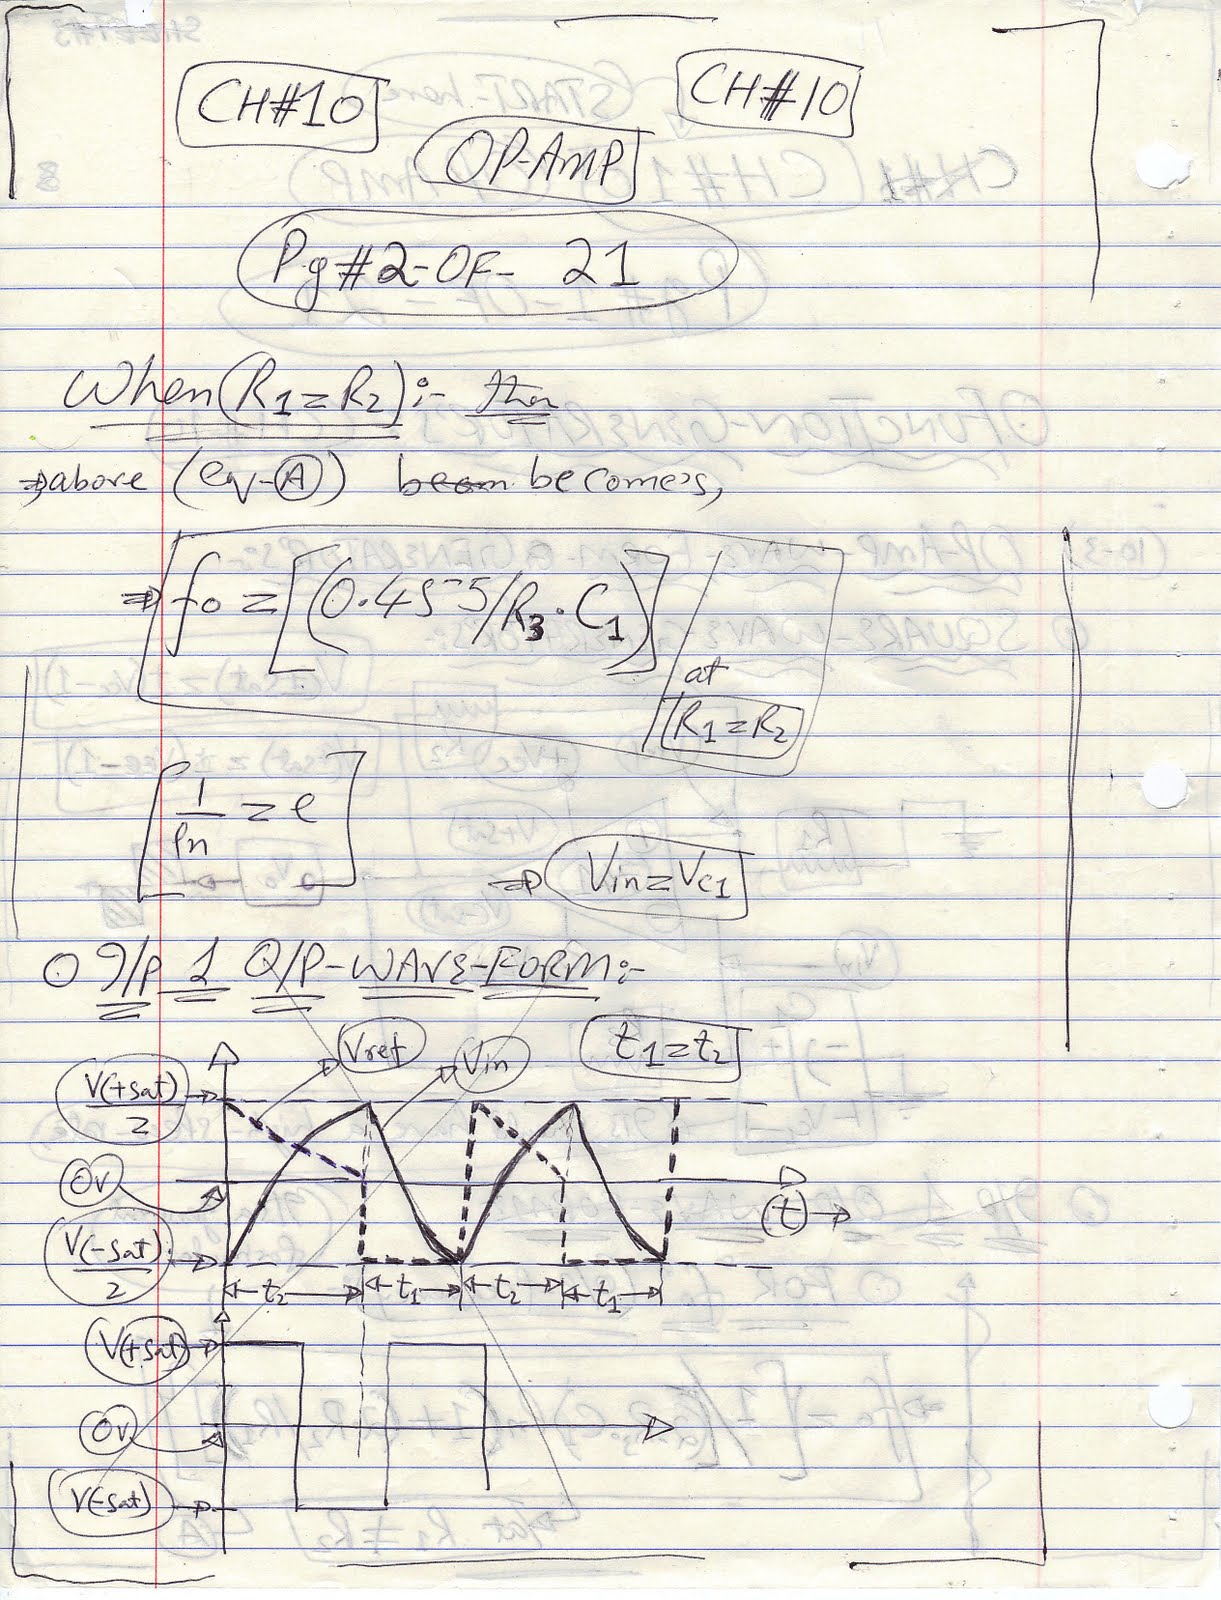 CH#10
CH#10
OP-AMP
Pg#2-OF- 21
When (R1=R2):- then
⇒ above (eq-A) becomes,
⇒ fo = [(0.455/R3·C1)]
at
R1=R2
[1/ln = e]
⇒ Vin=Vc1
O I/P & O/P-WAVE-FORM:-
t1=t2
Vref
Vin
V(+sat)/2
0V
(t)
V(-sat)/2
t2 t1 t2 t1
V(+sat)
0V
V(-sat)